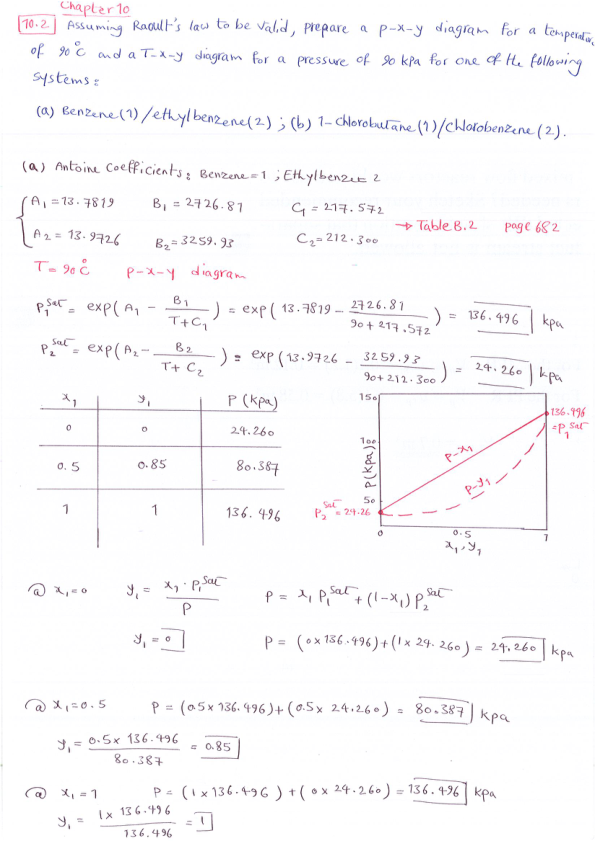 Chapter 10
10.2 Assuming Raoult's law to be valid, prepare a P-x-y diagram for a temperature
of 90°C and a T-x-y diagram for a pressure of 90 kPa for one of the following
systems:
(a) Benzene(1)/ethylbenzene(2); (b) 1-chlorobutane(1)/chlorobenzene(2).
(a) Antoine Coefficients: Benzene=1 ; Ethylbenzen 2
A1 = 13.7819 B1 = 2726.81 C1 = 217.572
→ Table B.2 page 682
A2 = 13.9726 B2 = 3259.93 C2 = 212.300
T = 90°C P-x-y diagram
P1^sat = exp(A1 - B1/(T+C1)) = exp(13.7819 - 2726.81/(90+217.572)) = 136.496 kpa
P2^sat = exp(A2 - B2/(T+C2)) = exp(13.9726 - 3259.93/(90+212.300)) = 24.260 kpa
x1 y1 P (kpa)
0 0 24.260
0.5 0.85 80.387
1 1 136.496
150
136.496
=P1^sat
100
P(kpa)
P-x1
P-y1
50
P2^sat=24.26
0 0.5 1
x1,y1
@ x1=0 y1 = x1.P1^sat/P P = x1 P1^sat + (1-x1) P2^sat
y1 = 0 P = (0x136.496)+(1x 24.260) = 24.260 kpa
@ x1=0.5 P = (0.5x 136.496)+(0.5x 24.260) = 80.387 kpa
y1 = 0.5x 136.496/80.387 = 0.85
@ x1=1 P = (1x136.496)+(0x24.260)=136.496 kpa
y1 = 1x136.496/136.496 = 1